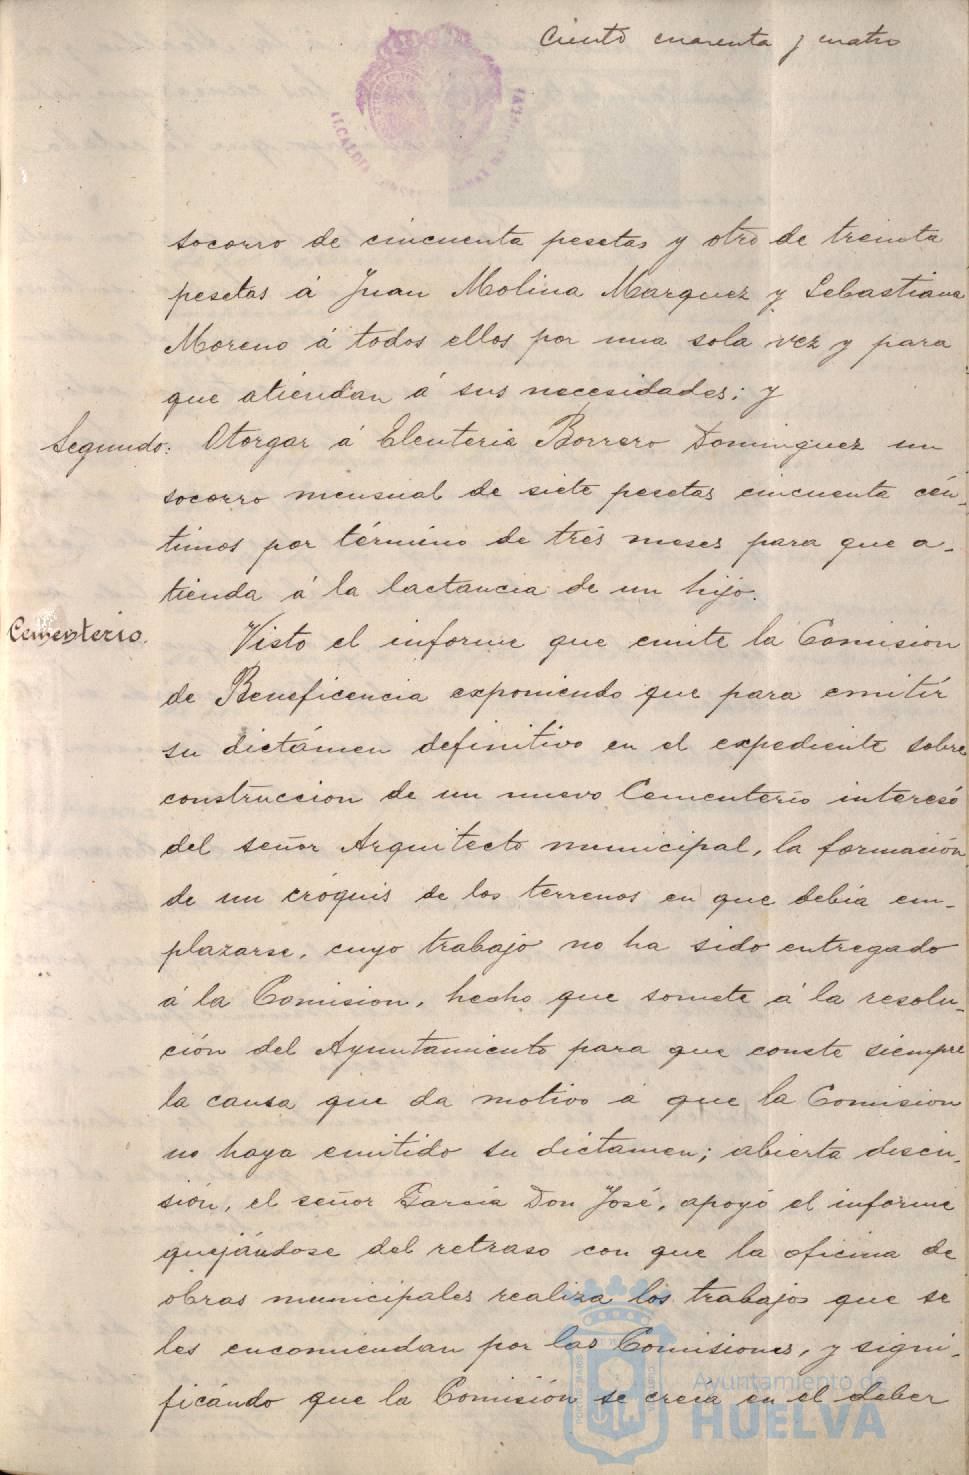 Ciento cuarenta y cuatro
ALCALDIA
socorro de cincuenta pesetas y otro de treinta
pesetas á Juan Molina Marquez y Sebastiana
Moreno á todos ellos por una sola vez y para
que atiendan á sus necesidades; y
Segundo: Otorgar á Eleuteria Borrero Dominguez un
socorro mensual de siete pesetas cincuenta cén-
timos por término de trés meses para que a-
tienda á la lactancia de un hijo.
Cementerio. Visto el informe que emite la Comision
de Beneficencia exponiendo que para emitir
su dictámen definitivo en el expediente sobre
construccion de un nuevo Cementerio interesó
del señor Arquitecto municipal, la formación
de un cróquis de los terrenos en que debia em-
plazarse, cuyo trabajo no ha sido entregado
á la Comision, hecho que somete á la resolu-
ción del Ayuntamiento para que conste siempre
la causa que da motivo á que la Comision
no haya emitido su dictamen; abierta discu-
sión, el señor García Don José, apoyó el informe
quejándose del retraso con que la oficina de
obras municipales realiza los trabajos que se
les encomiendan por las Comisiones, y signi-
ficándo que la Comisión se creia en el deber
Ayuntamiento de
HUELVA